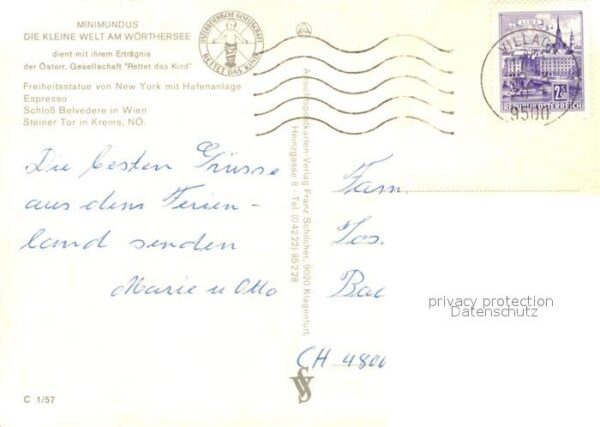 MINIMUNDUS
DIE KLEINE WELT AM WÖRTHERSEE
dient mit ihrem Erträgnis
der Österr. Gesellschaft "Rettet das Kind"
Freiheitsstatue von New York mit Hafenanlage
Espresso
Schloß Belvedere in Wien
Steiner Tor in Krems, NÖ.
ÖSTERREICHISCHE GESELLSCHAFT
RETTET DAS KIND
Die besten Grüsse
aus dem Ferien-
land senden
Marie u Otto
C 1/57
Ansichtspostkarten Verlag Franz Schilcher, 9020 Klagenfurt,
Heinzgasse 8 - Tel. (0 42 22) 85 2 28
VILLACH
9500
REPUBLIK ÖSTERREICH
Fam.
Jos.
privacy protection
Datenschutz
CH 4800